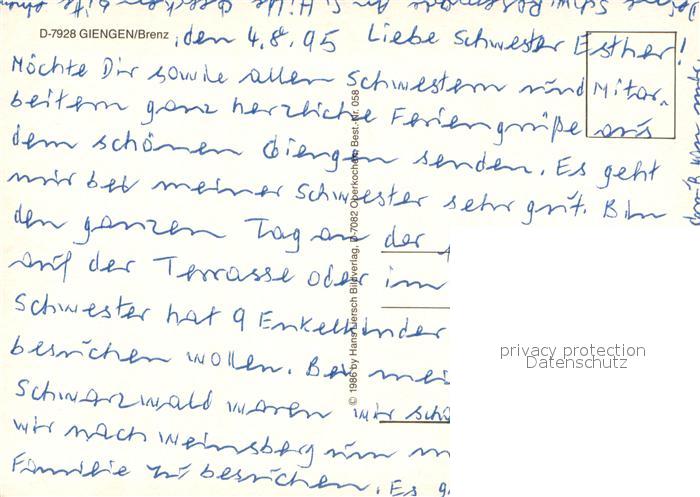 D-7928 GIENGEN/Brenz, den 4.8.95 Liebe Schwester Esther!
Möchte Dir sowie allen Schwestern und Mitar-
beitern ganz herzliche Feriengrüße aus
dem schönen Giengen senden. Es geht
mir bei meiner Schwester sehr gut. Bin
den ganzen Tag an der
auf der Terrasse oder im
Schwester hat 9 Enkelkinder
besuchen wollen. Bei
Schwarzwald waren wir
wir nach Weinsberg um
Familie zu besuchen. Es
© 1986 by Hans Liersch Bildverlag, D-7082 Oberkochen Best.-Nr. 058
privacy protection
Datenschutz